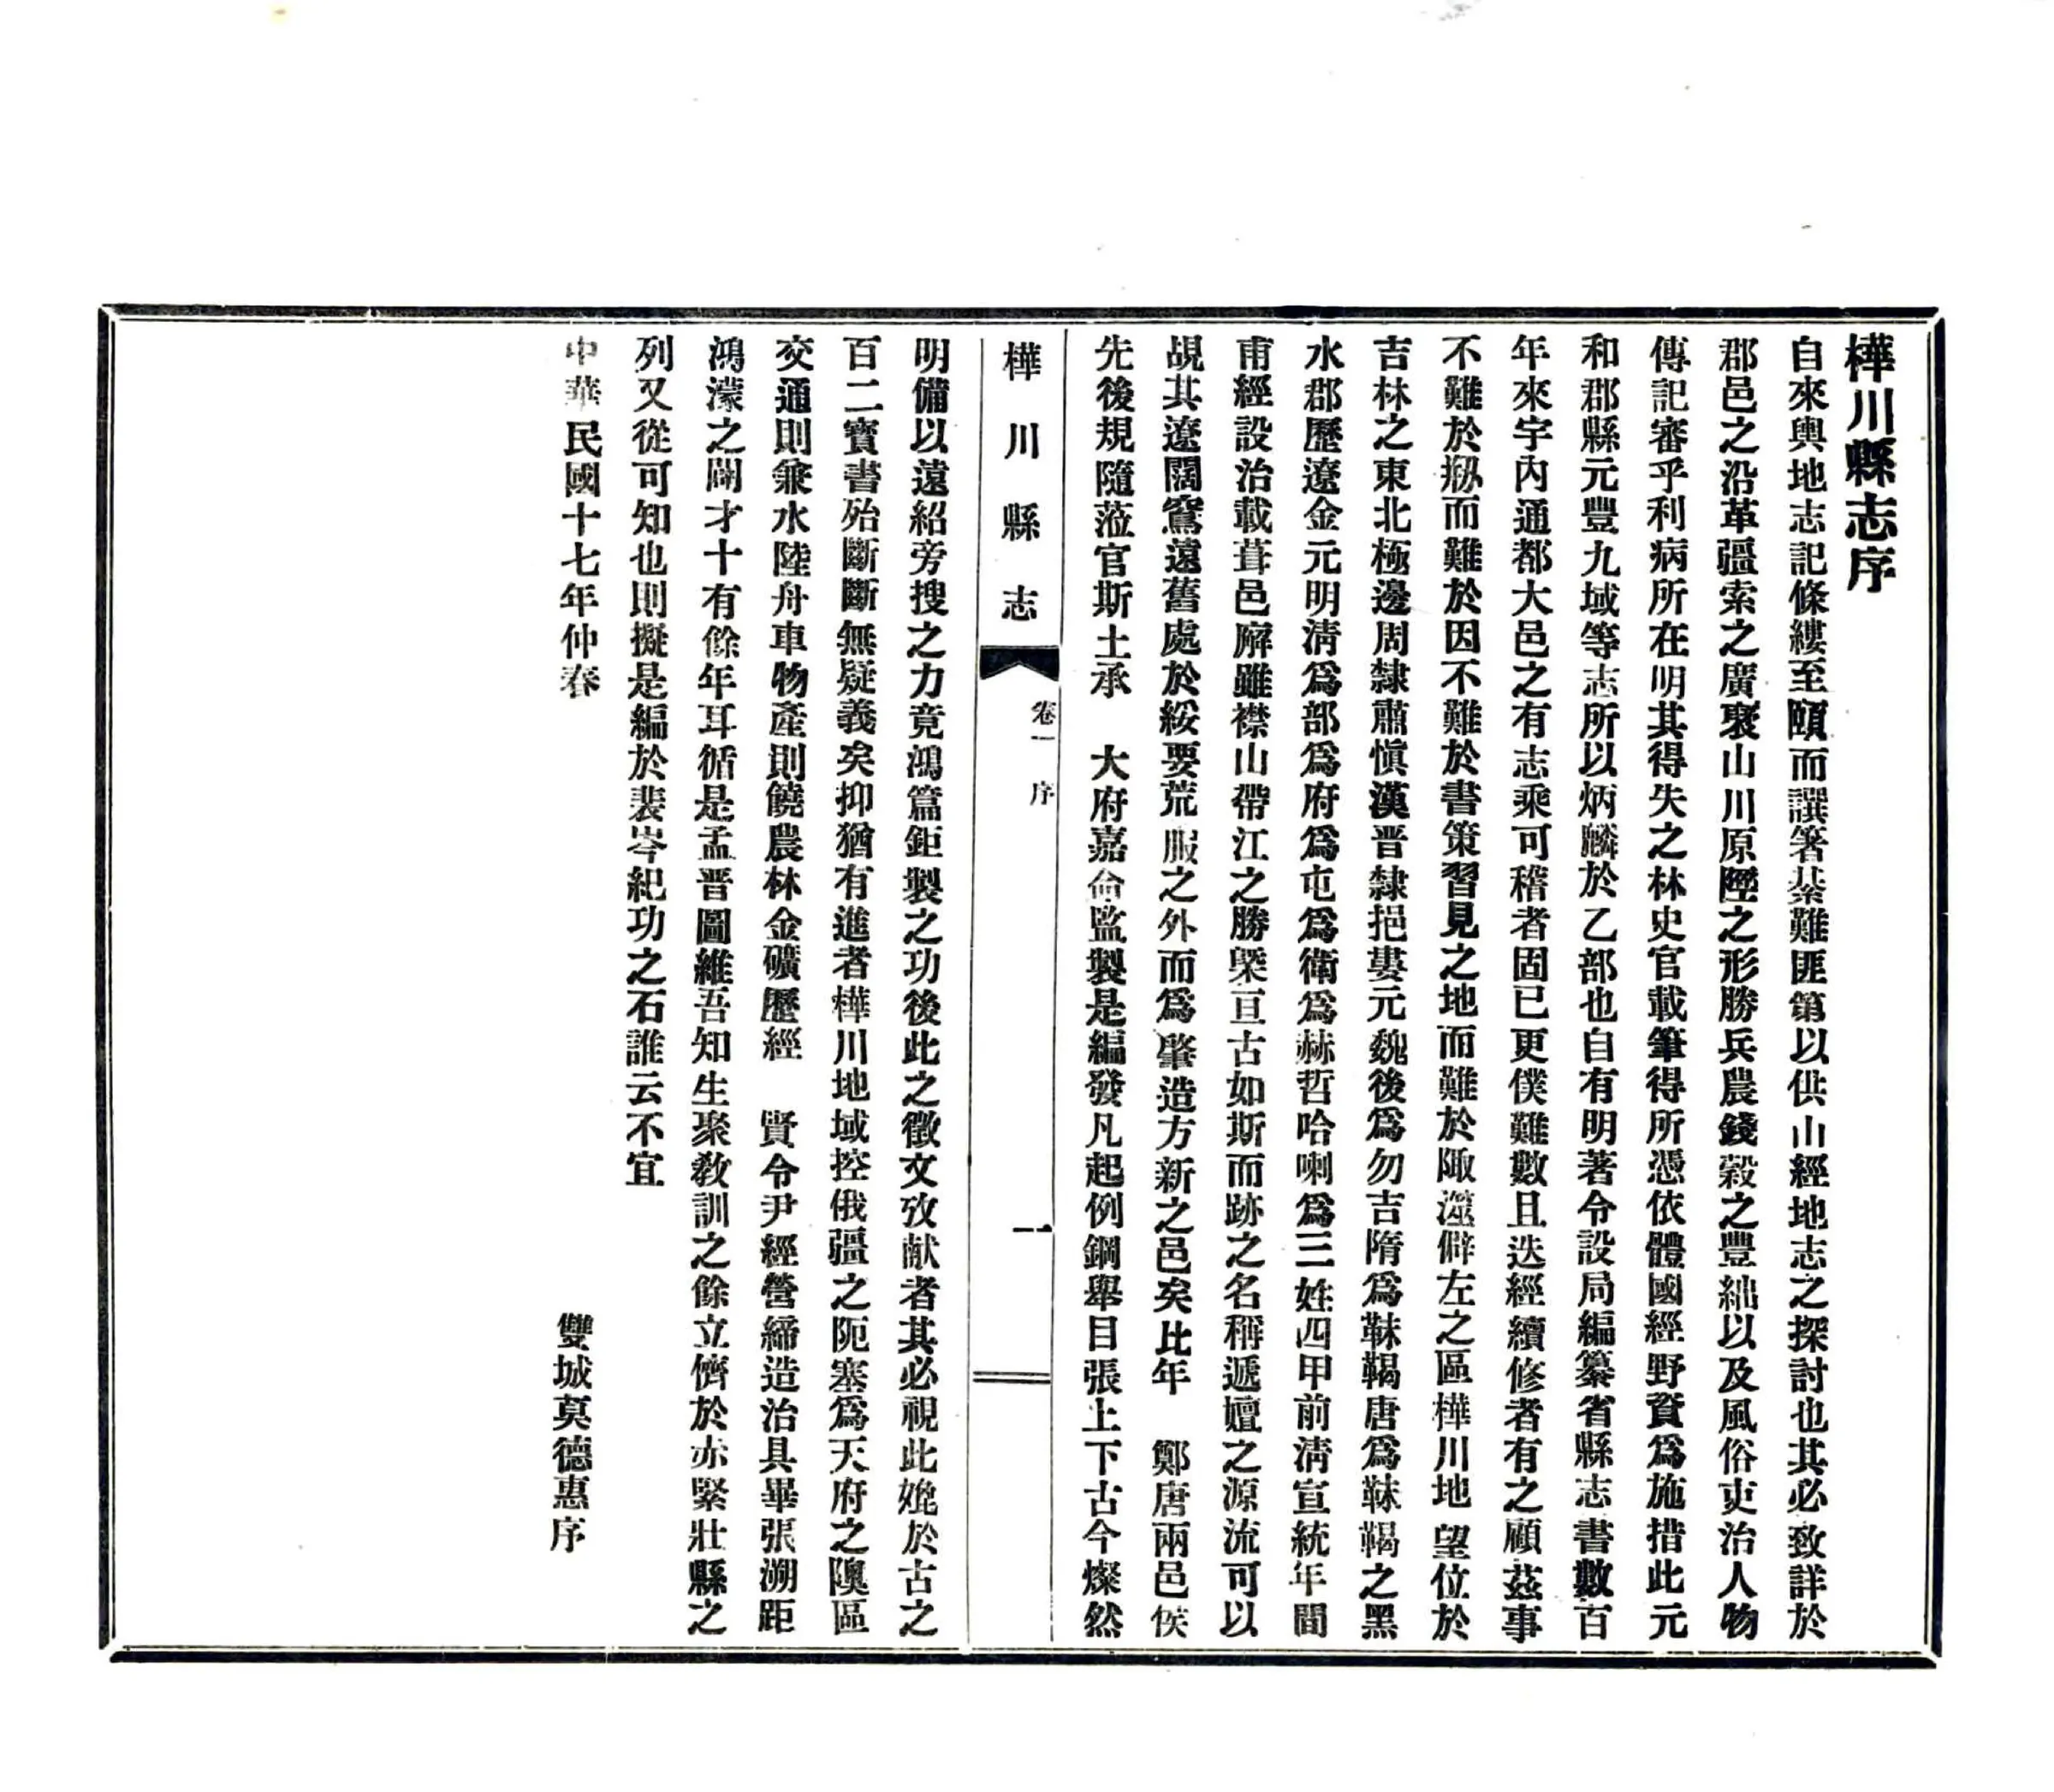 樺川縣志序
自來輿地志記條縷至賾而譔箸綦難匪第以供山經地志之探討也其必致詳於
郡邑之沿革疆索之廣袤山川原隰之形勝兵農錢穀之豐絀以及風俗吏治人物
傳記審乎利病所在明其得失之林史官載筆得所憑依體國經野資爲施措此元
和郡縣元豐九域等志所以炳麟於乙部也自有明著令設局編纂省縣志書數百
年來宇內通都大邑之有志乘可稽者固已更僕難數且迭經續修者有之顧茲事
不難於剏而難於因不難於書策習見之地而難於陬澨僻左之區樺川地望位於
吉林之東北極邊周隸肅愼漢晋隸挹婁元魏後爲勿吉隋爲靺鞨唐爲靺鞨之黑
水郡歷遼金元明淸爲部爲府爲屯爲衛爲赫哲哈喇爲三姓四甲前淸宣統年間
甫經設治載葺邑廨雖襟山帶江之勝槩亘古如斯而跡之名稱遞嬗之源流可以
覘其遼闊窵遠舊處於綏要荒服之外而爲肇造方新之邑矣比年　鄭唐兩邑侯
先後規隨蒞官斯土承　大府嘉命監製是編發凡起例鋼舉目張上下古今燦然
樺川縣志
卷一　序
一
明備以遠紹旁搜之力竟鴻篇鉅製之功後此之徵文攷献者其必視此媲於古之
百二寳書殆斷斷無疑義矣抑猶有進者樺川地域控俄疆之阨塞爲天府之隩區
交通則兼水陸舟車物產則饒農林金礦歷經　賢令尹經營締造治具畢張溯距
鴻濛之闢才十有餘年耳循是孟晋圖維吾知生聚敎訓之餘立儕於赤緊壯縣之
列又從可知也則擬是編於裴岑紀功之石誰云不宜
中華民國十七年仲春
雙城莫德惠序